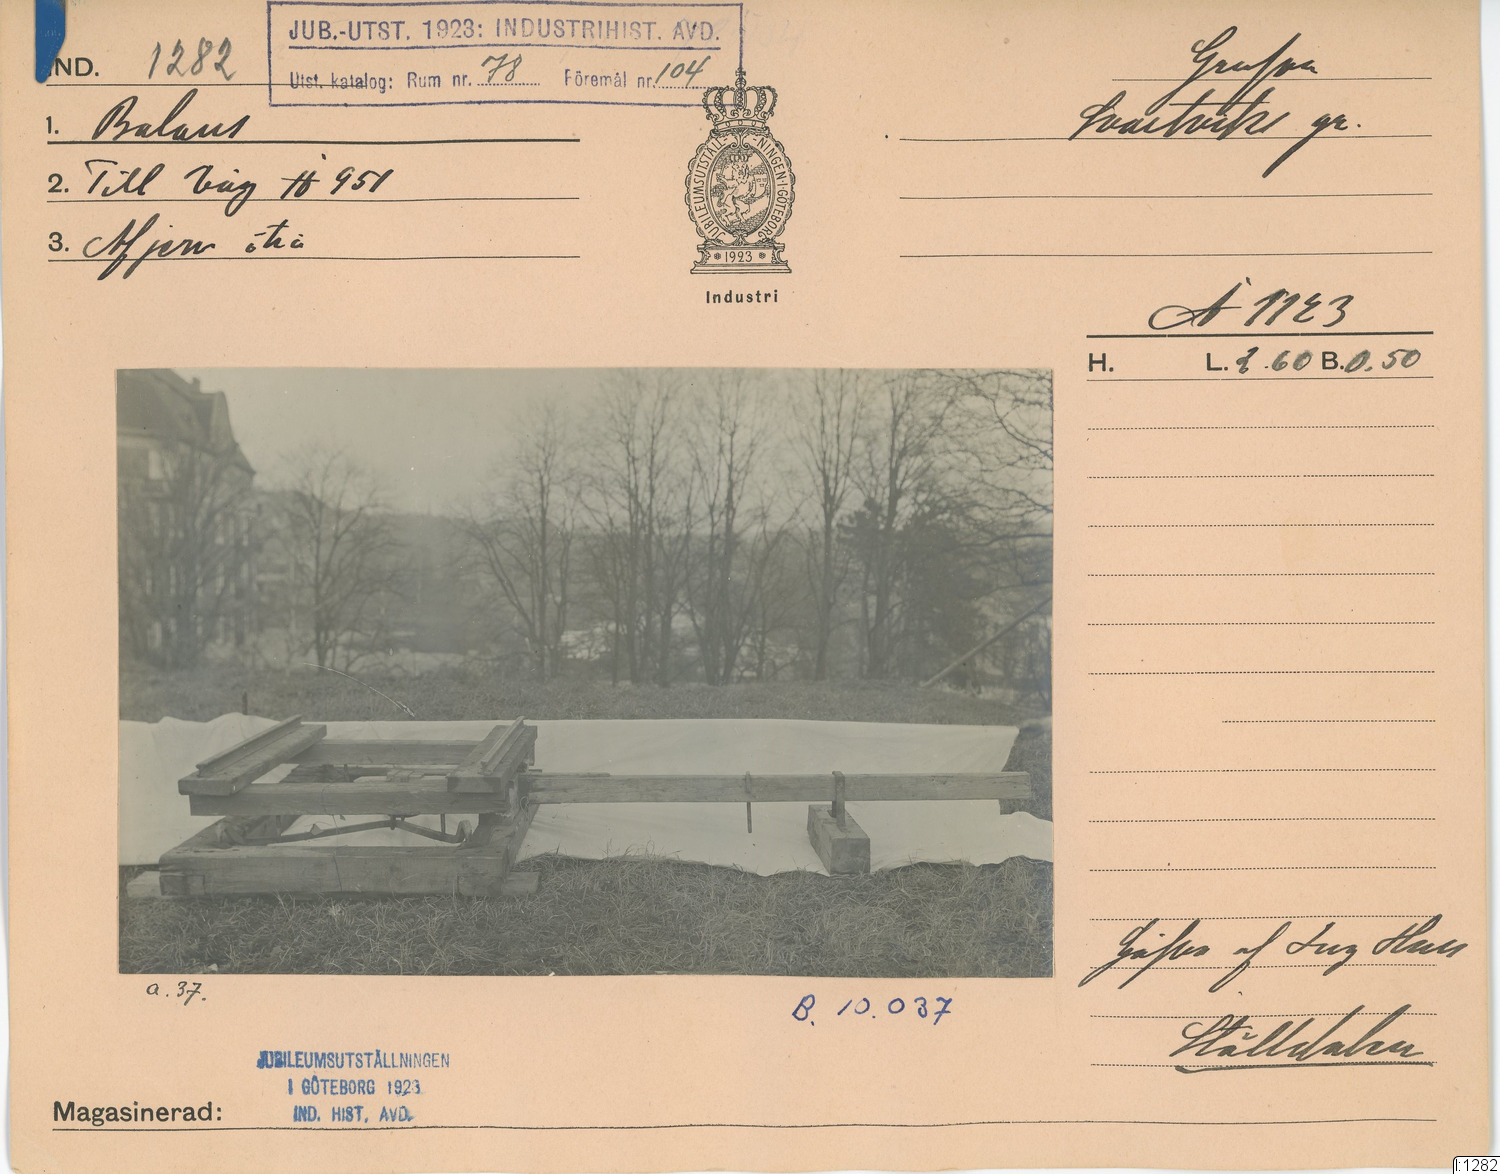 JUB.-UTST. 1923: INDUSTRIHIST. AVD.
Utst. katalog: Rum nr. 78 Föremål nr. 104
IND. 1282
1. Balans
2. Till Våg № 951
3. Af jern o trä
JUBILEUMSUTSTÄLLNINGEN·I·GÖTEBORG
1923
Industri
Grufva
Svartviks gr.
1123
H. L. 2.60 B. 0.50
Gåfva af Ing
Ställdalen
a. 37.
B. 10.037
JUBILEUMSUTSTÄLLNINGEN
I GÖTEBORG 1923
IND. HIST. AVD.
Magasinerad:
I:1282